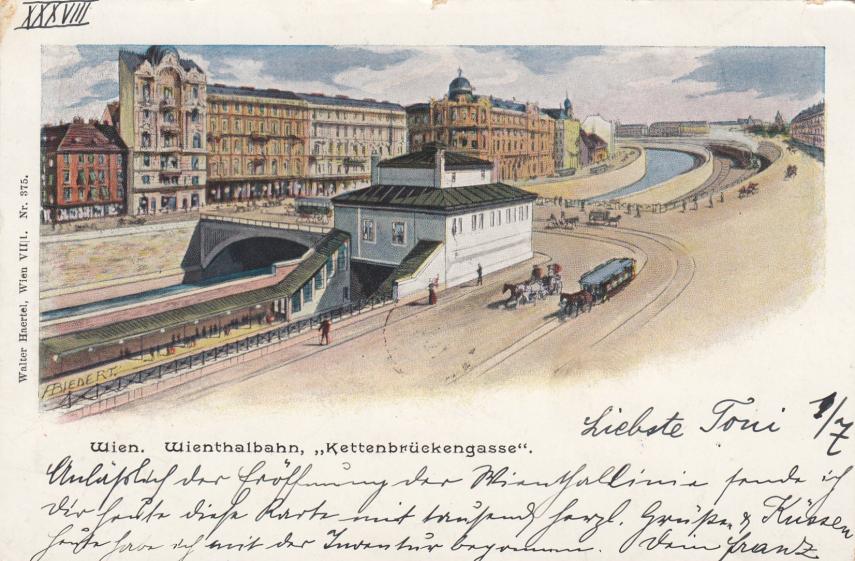 XXXVIII
Walter Haertel, Wien VII|1. Nr. 375.
F. BIEDERT.
Wien. Wienthalbahn, „Kettenbrückengasse“.
Liebste Toni 1/7
Anläßlich der Eröffnung der Wienthallinie sende ich
dir heute diese Karte mit tausend herzl. Grüßen & Küssen
heute habe ich mit der Inventur begonnen. Dein Franz